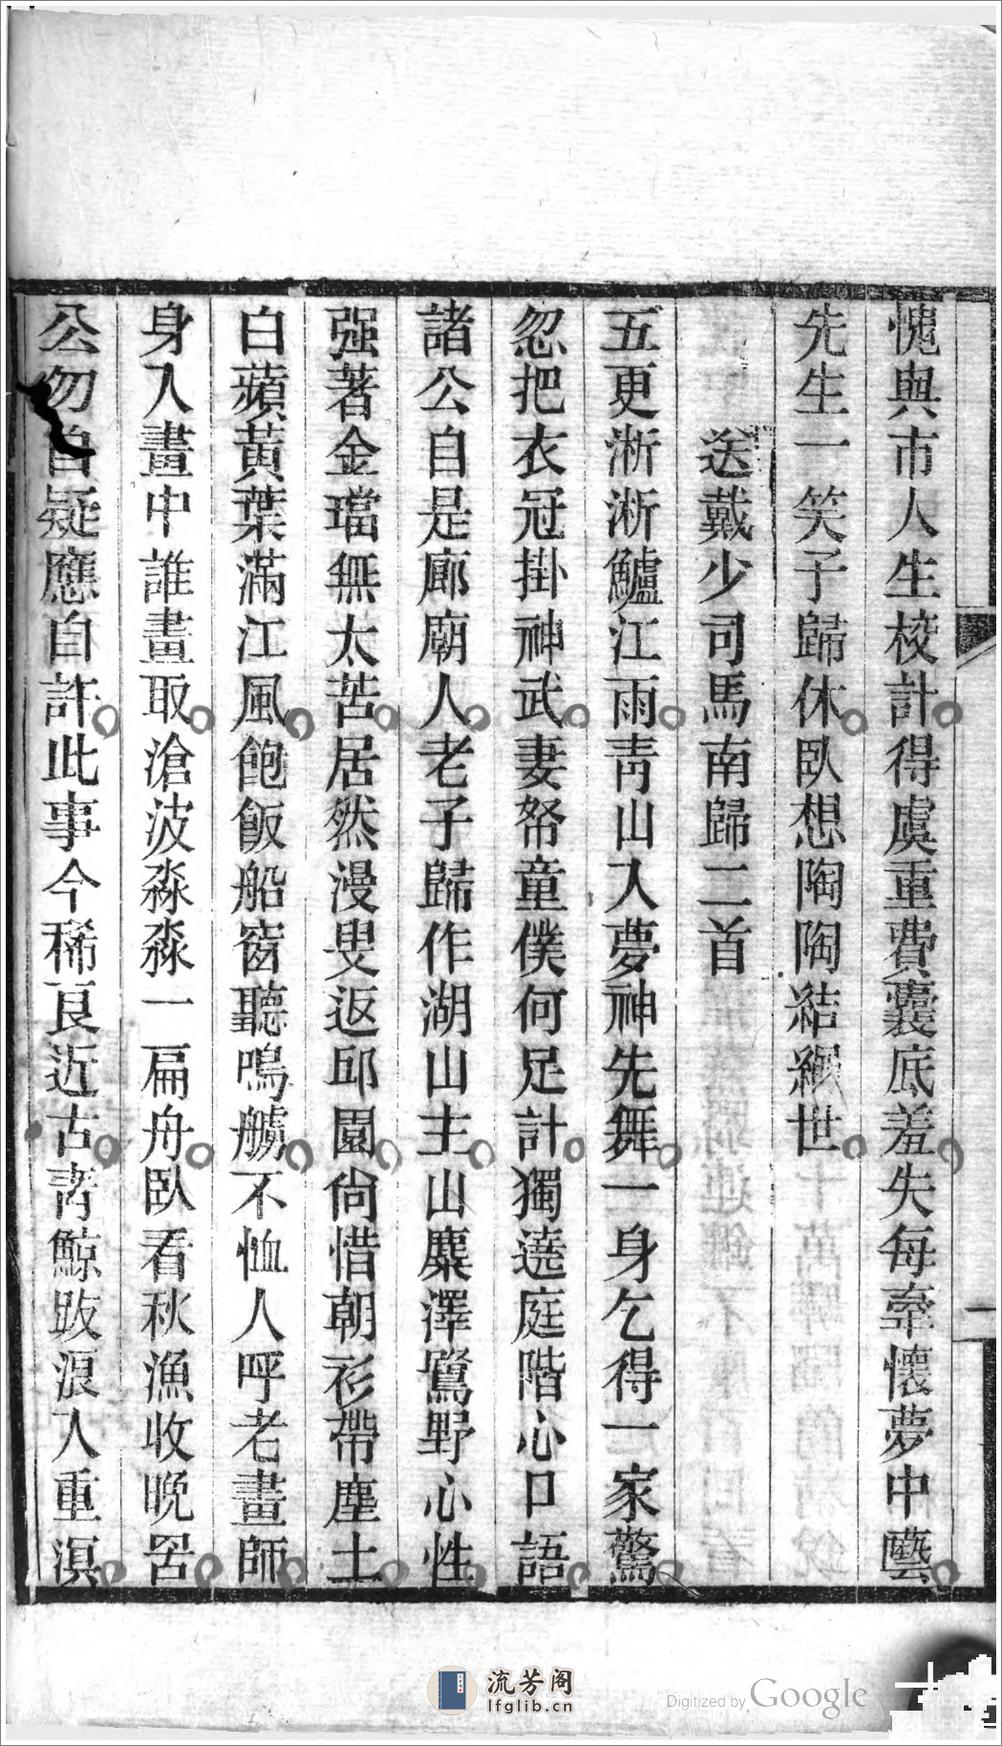 愧與市人生校計得虞重費囊底羞失每牽懷夢中囈
先生一笑子歸休臥想陶陶結繩世
送戴少司馬南歸二首
五更淅淅鱸江雨青山入夢神先舞一身乞得一家驚
忽把衣冠掛神武妻帑童僕何足計獨遶庭階心口語
諸公自是廊廟人老子歸作湖山主山麋澤鷺野心性
强著金璫無太苦居然漫叟返邱園尙惜朝衫帶塵土
白蘋黃葉滿江風飽飯船窗聽鳴艣不恤人呼老畫師
身入畫中誰畫取滄波淼淼一扁舟臥看秋漁收晚罟
公勿自疑應自許此事今稀良近古靑鯨跋浪入重溟
流芳阁
lfglib.cn
Digitized by Google